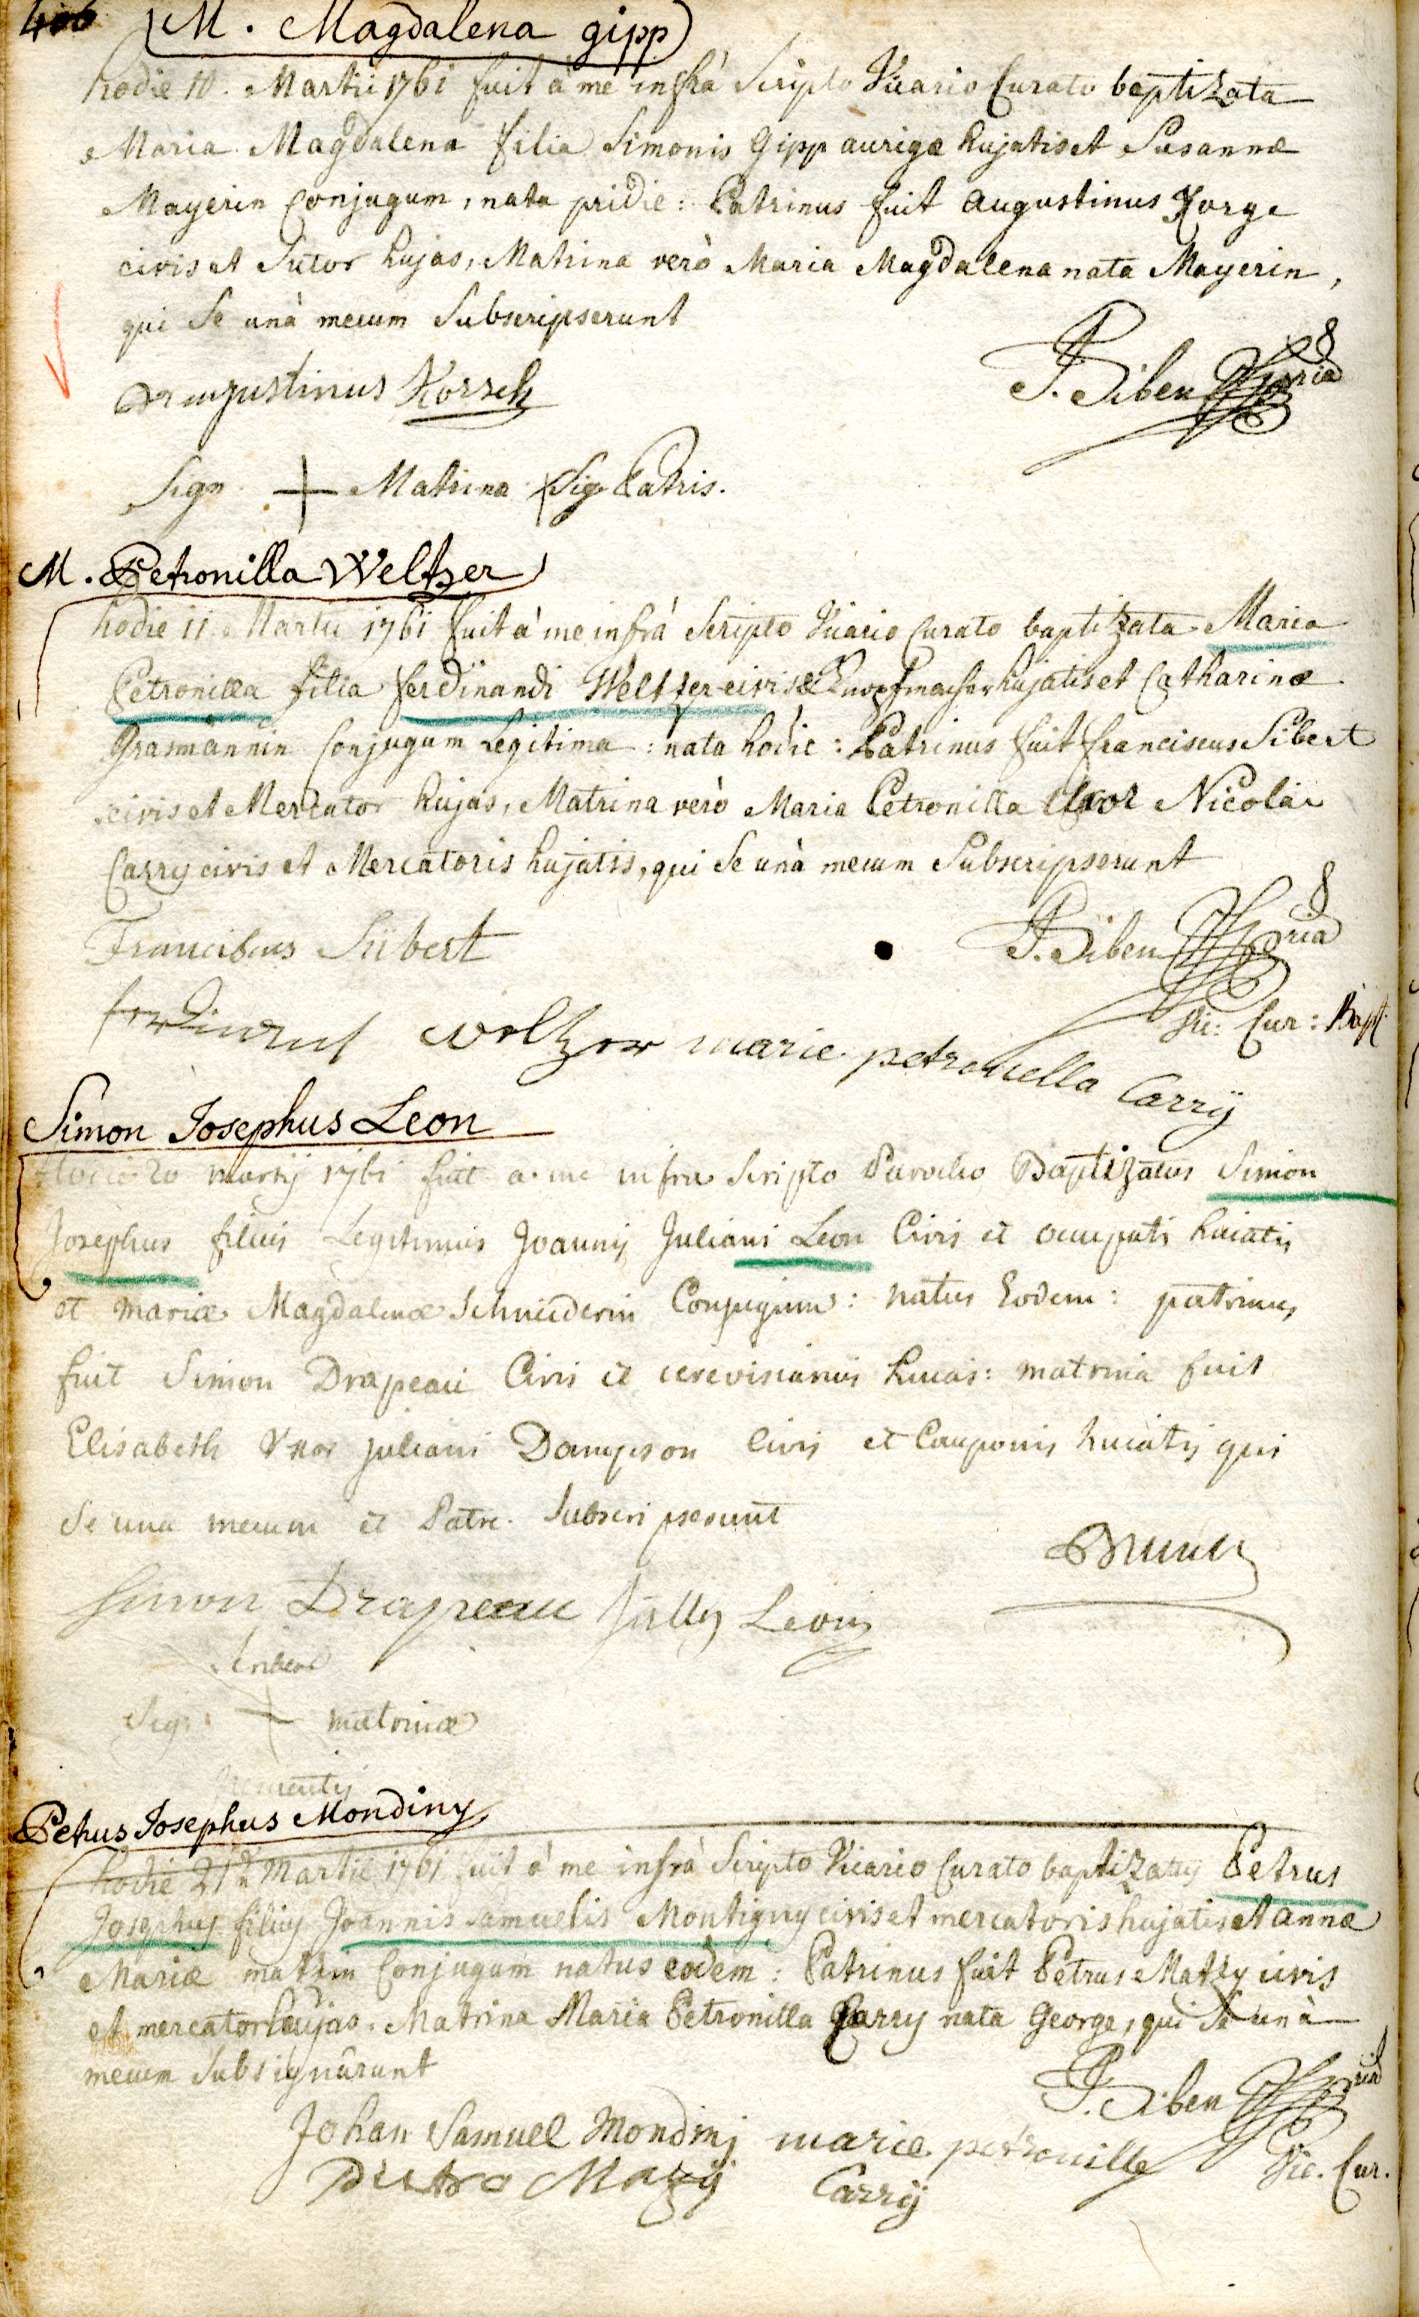 406 M. Magdalena gipp
hodie 10. Martii 1761 fuit à me infrà Scripto Vicario Curato baptizata
Maria Magdalena filia Simonis Gipp aurigæ hujatis et Susannæ
Mayerin Conjugum, nata pridie: Patrinus fuit Augustinus Korge
civis et Sutor hujas, Matrina verò Maria Magdalena nata Mayerin,
qui Se unà mecum Subscripserunt
Augustinus Korsch P. Siben
Sign + Matrina Sig Patris.
M. Petronilla Weltzer
hodie 11 Martii 1761 fuit à me infrà Scripto Vicario Curato baptizata Maria
Petronilla filia ferdinandi Weltzer civis et Knopfmacher hujatis et Catharinæ
Grasmännin Conjugum Legitima: nata hodie: Patrinus fuit franciscus Sibert
civis et Mercator hujas, Matrina verò Maria Petronilla Uxor Nicolai
Carry civis et Mercatoris hujatis, qui Se unà mecum Subscripserunt
Franciscus Siibert P. Siben
Vic: Cur: Bapt.
ferdinant weltzer marie petronella Carrÿ
Simon Josephus Leon
Hodie 20 martij 1761 fuit a me infra Scripto Parocho Baptizatus Simon
Josephus filius Legitimus Joannis Juliani Leon Civis et hujatis
et mariæ Magdalenæ Schneiderin Conjugum: natus Eodem: patrinus
fuit Simon Drapeau Civis et cerevisiarius hujas: matrina fuit
Elisabeth Uxor Juliani Dampson Civis et Cauponis hujatis qui
Se una mecum et Patre Subscripserunt
Simon Drapeau Leon
Sig: + matrinæ
Petrus Josephus Mondiny
hodie 21 Martii 1761 fuit à me infrà Scripto Vicario Curato baptizatus Petrus
Josephus filius Joannis Samuelis Montigny civis et mercatoris hujatis et annæ
Mariæ Conjugum natus eodem: Patrinus fuit Petrus Matzy civis
et mercator hujas. Matrina Maria Petronilla Carry nata George, qui Se unà
mecum Subsignârunt
P. Siben
Johan Samuel Mondinj marie petronille Vic. Cur.
Pietro Mazij Carrÿ